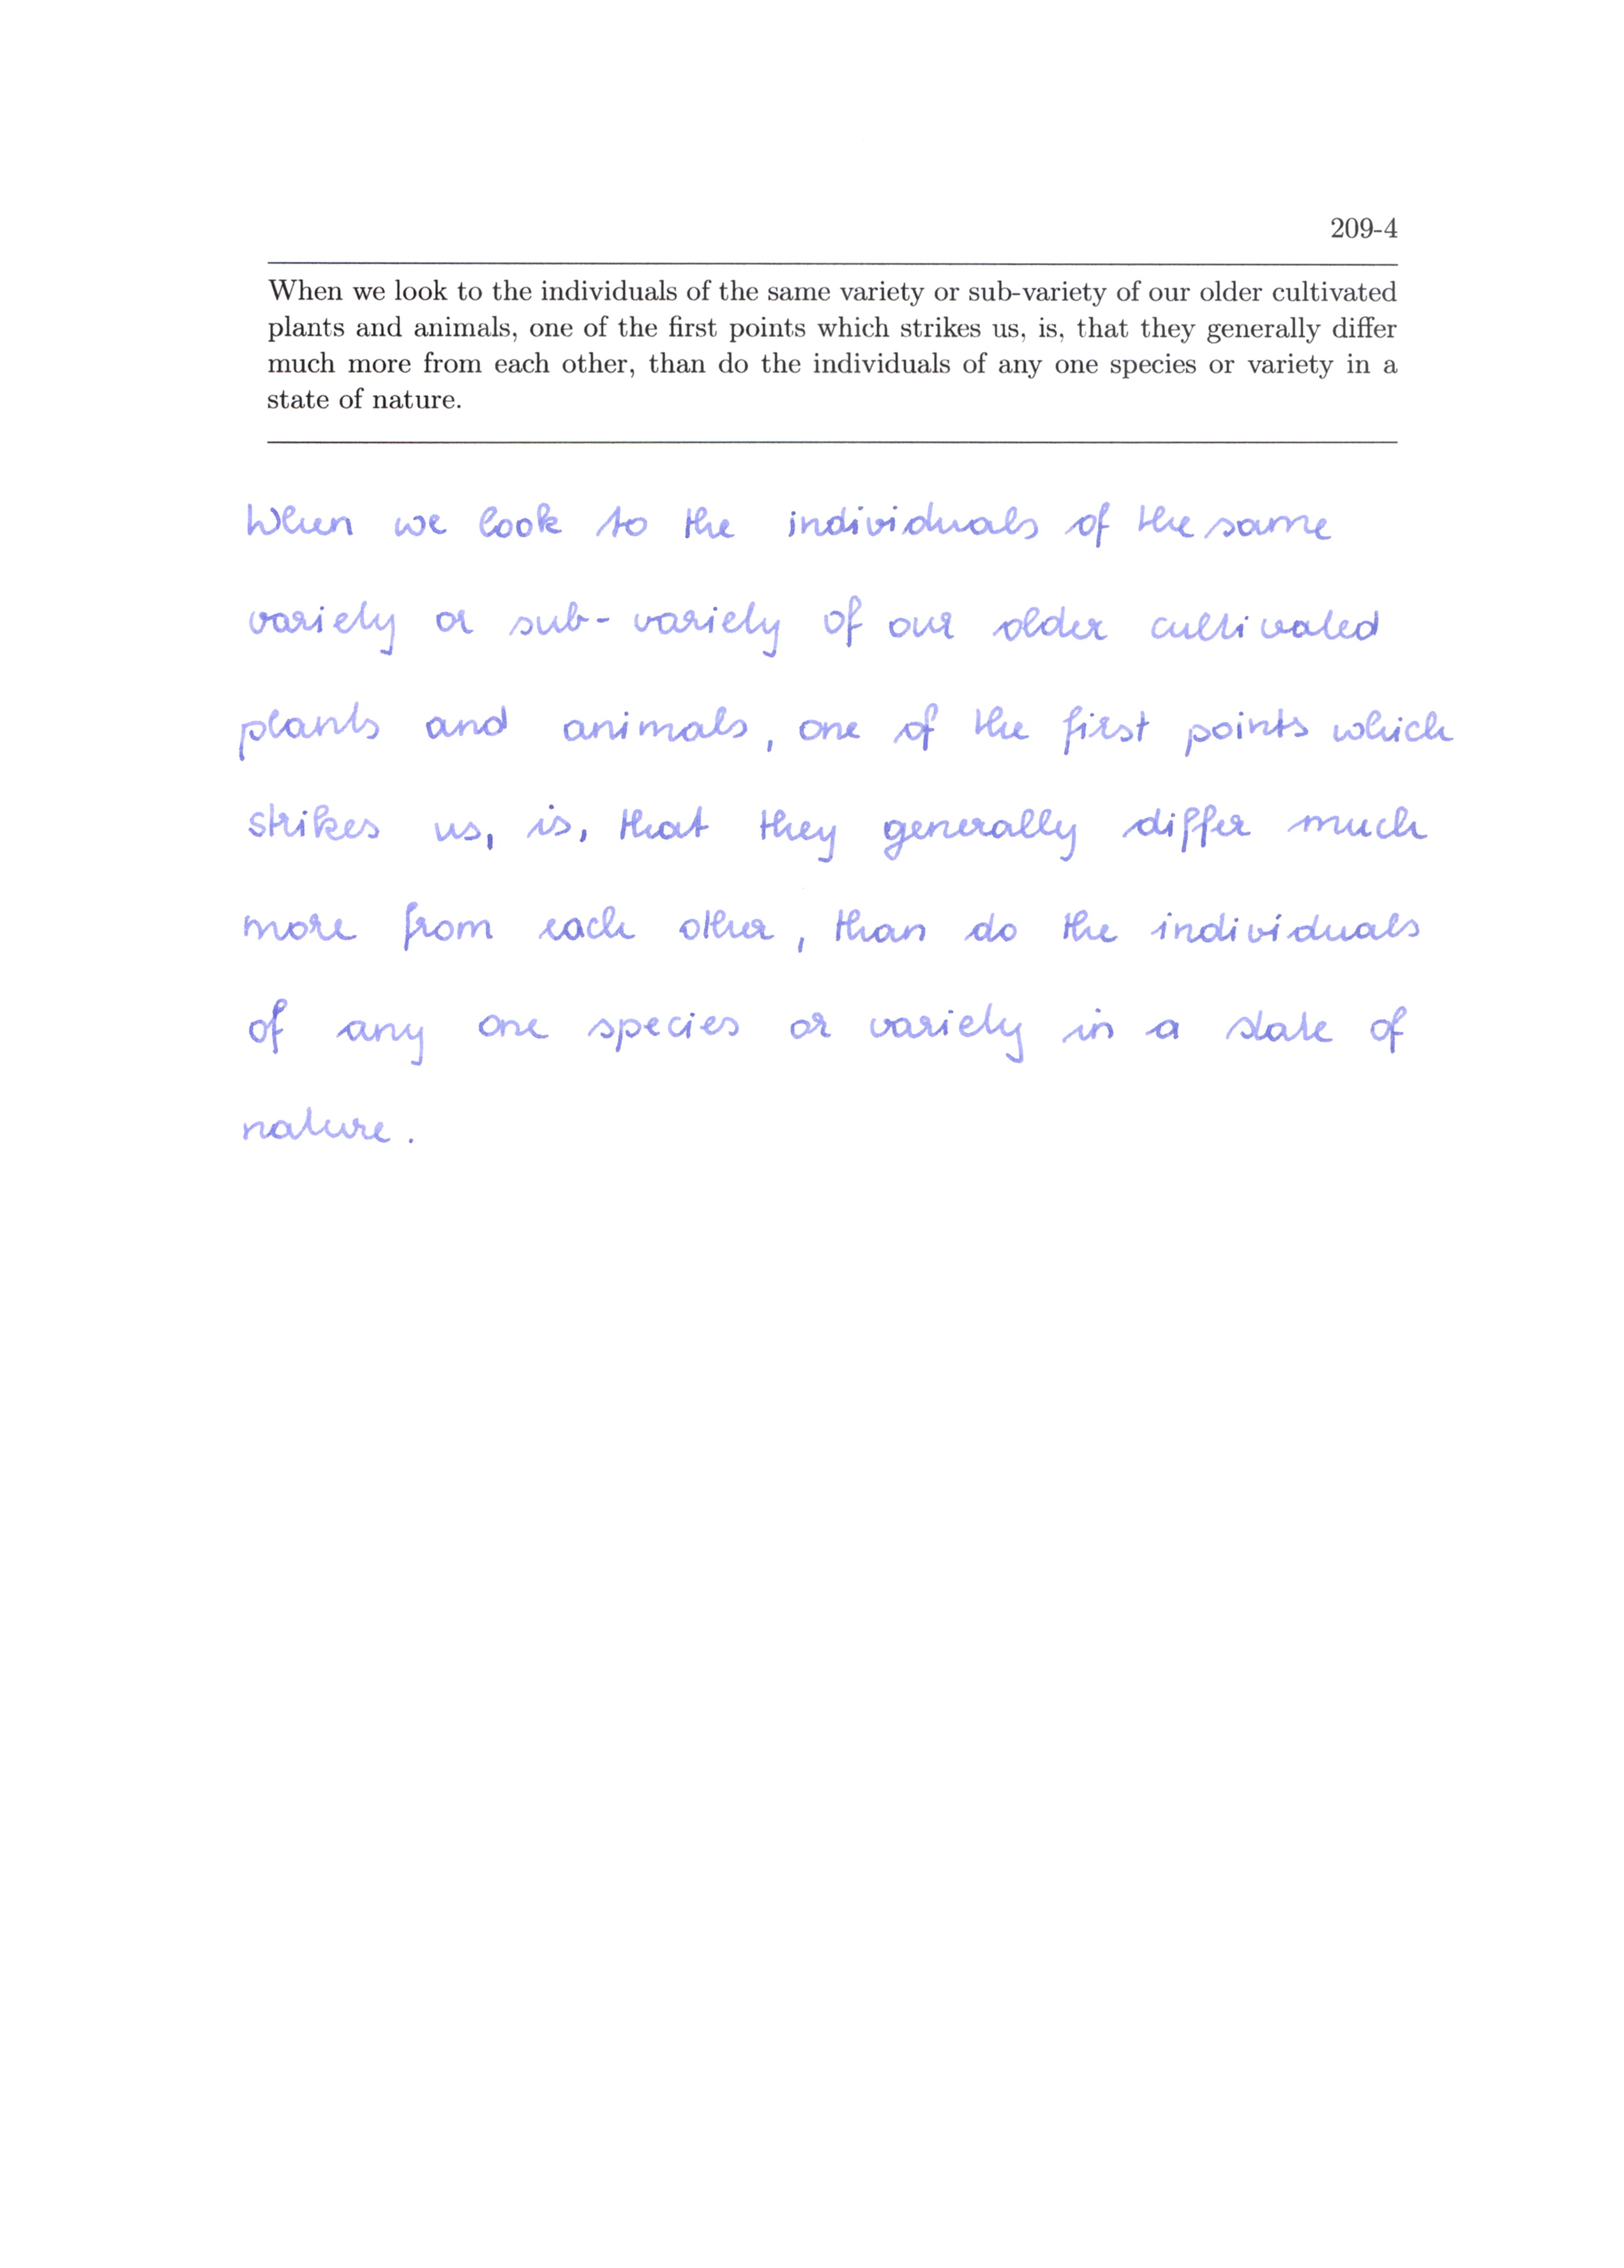 209-4
When we look to the individuals of the same variety or sub-variety of our older cultivated
plants and animals, one of the first points which strikes us, is, that they generally differ
much more from each other, than do the individuals of any one species or variety in a
state of nature.
When we look to the individuals of the same
variety or sub-variety of our older cultivated
plants and animals, one of the first points which
strikes us, is, that they generally differ much
more from each other, than do the individuals
of any one species or variety in a state of
nature.